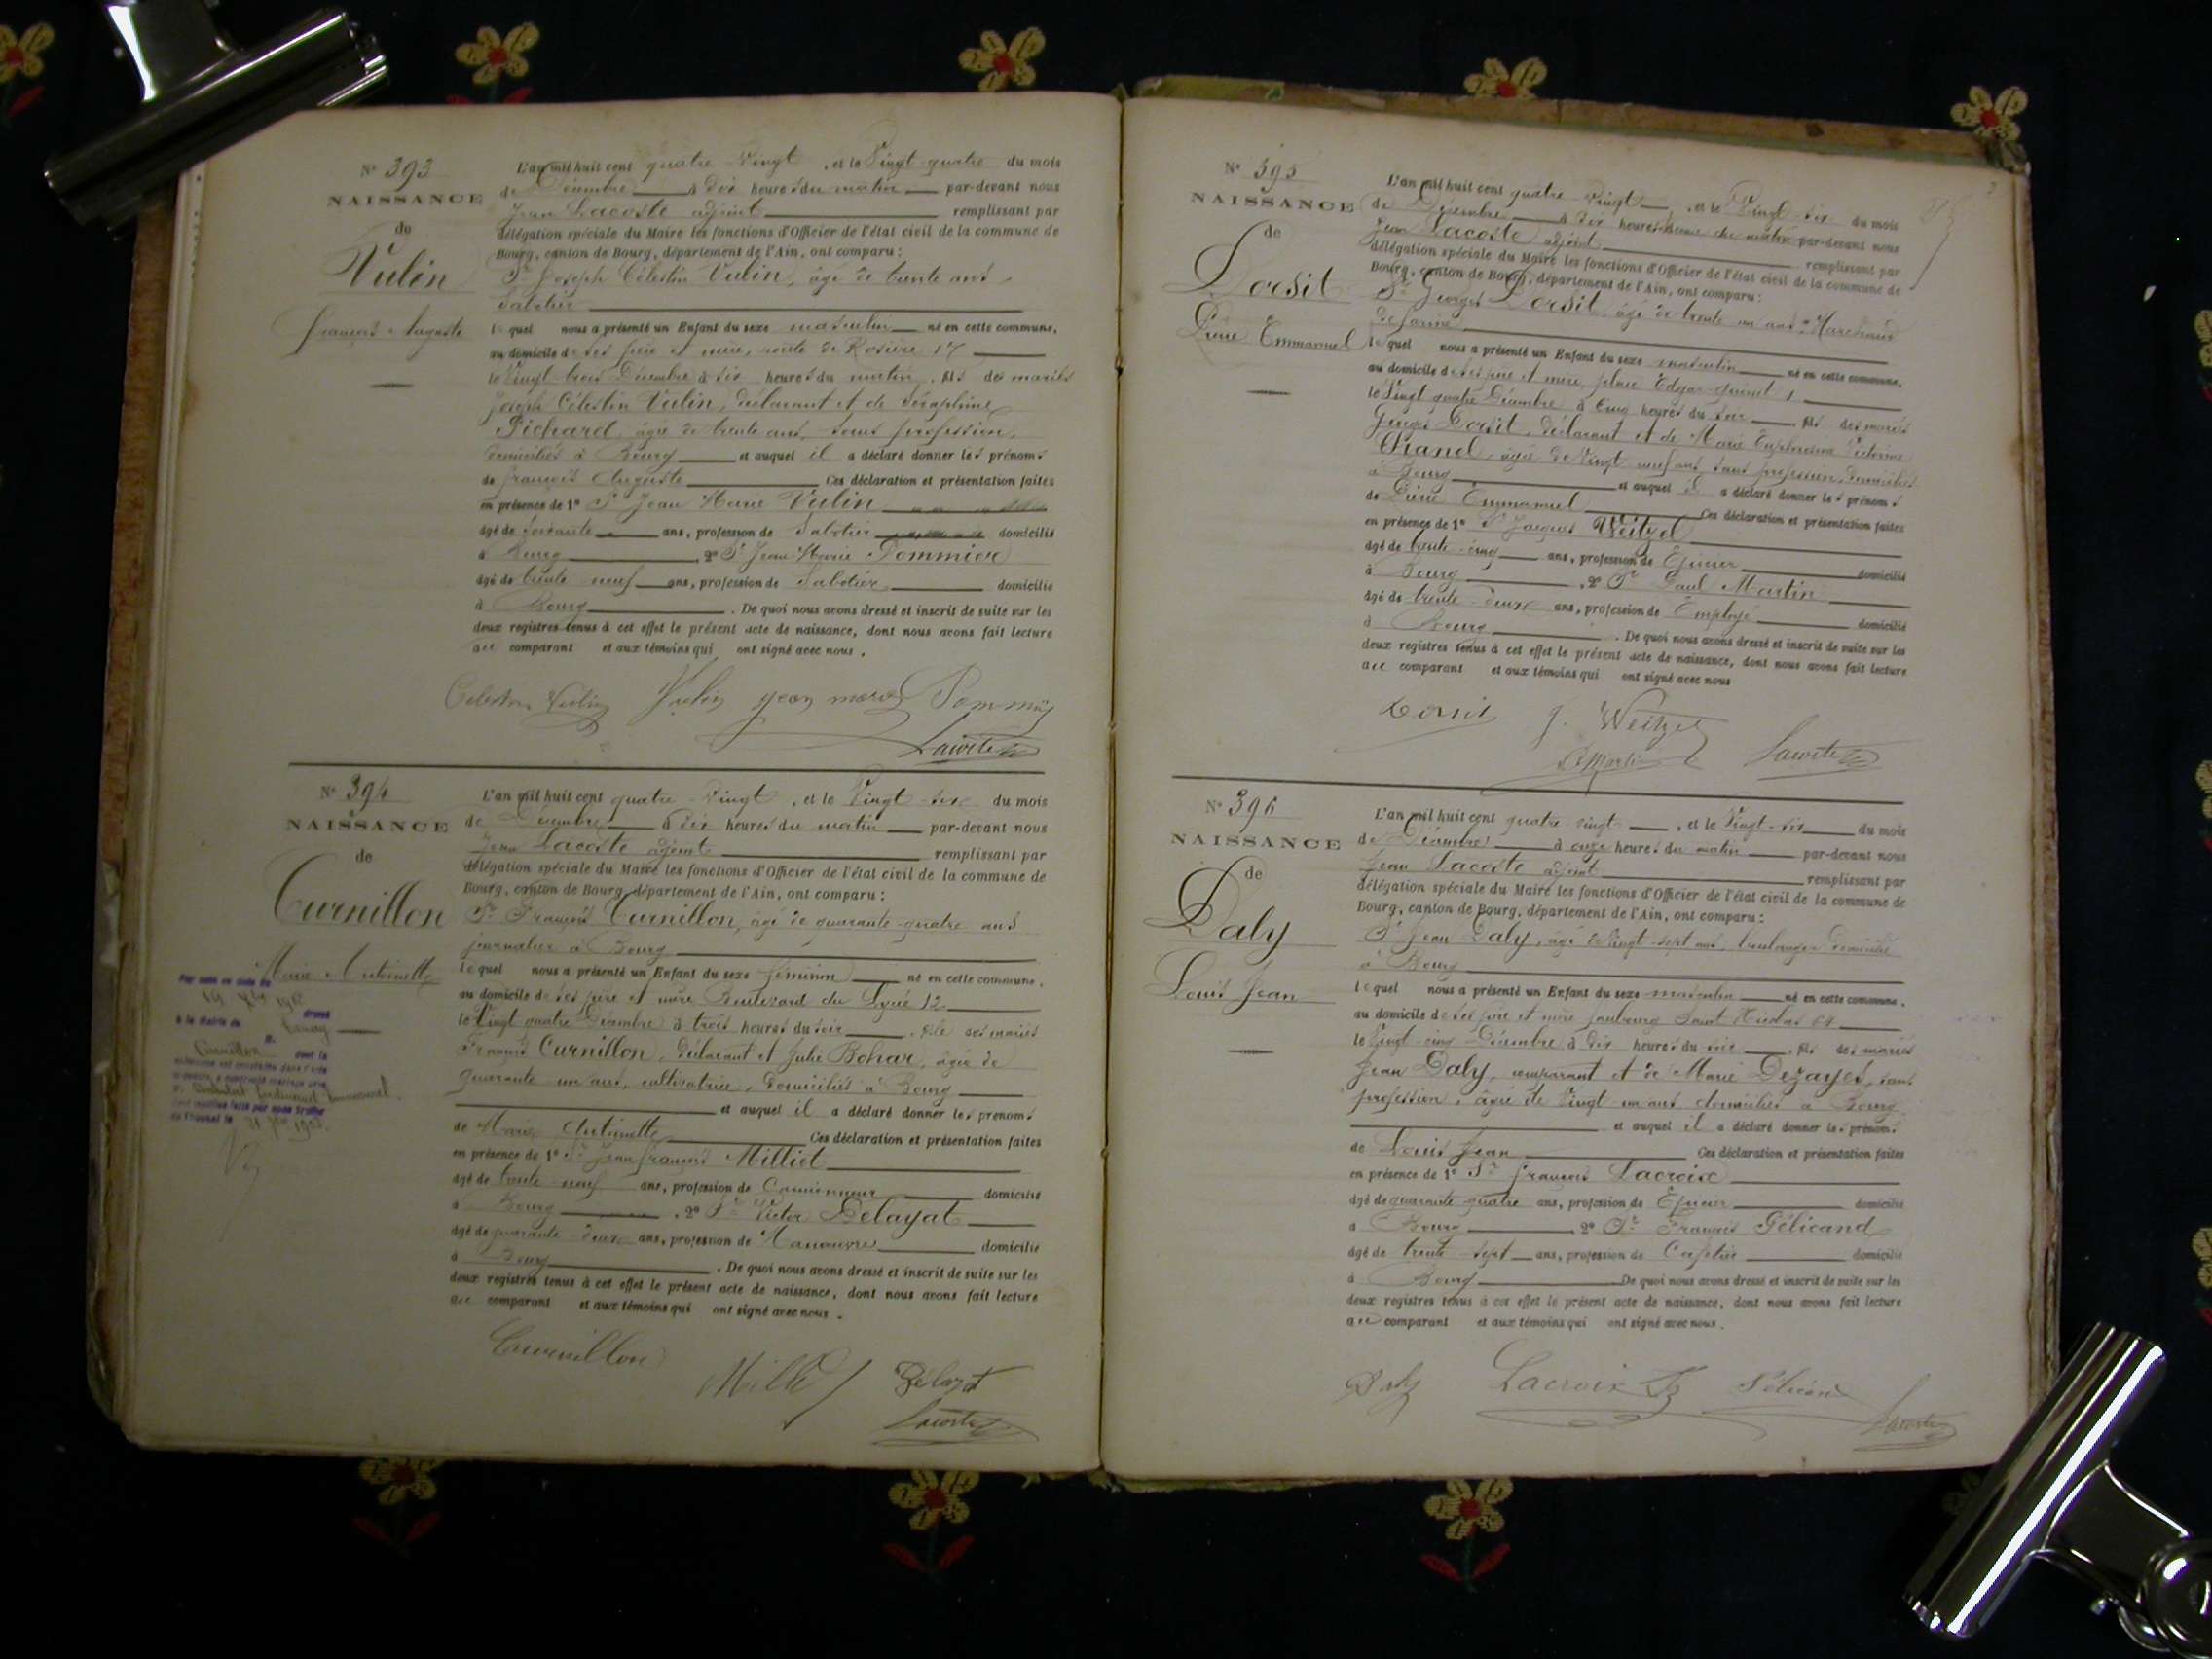 N° 393
NAISSANCE
de
Vulin
François Auguste
L'an mil huit cent quatre Vingt, et le Vingt quatre du mois
de Décembre à dix heures du matin par-devant nous
Jean Lacoste adjoint remplissant par
délégation spéciale du Maire les fonctions d'Officier de l'état civil de la commune de
Bourg, canton de Bourg, département de l'Ain, ont comparu :
Sr Joseph Célestin Vulin, âgé de trente ans
Sabotier
lequel nous a présenté un Enfant du sexe masculin né en cette commune,
au domicile de ses père et mère, route de Rosière 17
le Vingt-trois Décembre à six heures du matin, fils des mariés
Joseph Célestin Vulin, déclarant et de Séraphine
Pichard âgée de trente ans, sans profession,
domiciliés à Bourg et auquel il a déclaré donner les prénoms
de François Auguste Ces déclaration et présentation faites
en présence de 1° Sr Jean Marie Vulin
âgé de soixante ans, profession de Sabotier domicilié
à Bourg, 2° Sr Jean Marie Pommier
âgé de trente neuf ans, profession de Sabotier domicilié
à Bourg. De quoi nous avons dressé et inscrit de suite sur les
deux registres tenus à cet effet le présent acte de naissance, dont nous avons fait lecture
au comparant et aux témoins qui ont signé avec nous.
Célestin Vulin Vulin jean marie Pommier
Lacoste
N° 394
NAISSANCE
de
Curnillon
Marie Antoinette
L'an mil huit cent quatre-Vingt, et le Vingt-six du mois
de Décembre à dix heures du matin par-devant nous
Jean Lacoste adjoint remplissant par
délégation spéciale du Maire les fonctions d'Officier de l'état civil de la commune de
Bourg, canton de Bourg, département de l'Ain, ont comparu :
Sr François Curnillon, âgé de quarante-quatre ans
journalier à Bourg
lequel nous a présenté un Enfant du sexe féminin né en cette commune,
au domicile de ses père et mère Boulevard du Lycée 12
le Vingt quatre Décembre à trois heures du soir, fille des mariés
François Curnillon, déclarant et Julie Bohar, âgée de
quarante un ans, cultivatrice, domiciliés à Bourg
et auquel il a déclaré donner les prénoms
de Marie Antoinette Ces déclaration et présentation faites
en présence de 1° Sr Jean François Milliet
âgé de trente neuf ans, profession de Camionneur domicilié
à Bourg, 2° Sr Victor Delayat
âgé de quarante deux ans, profession de Manoeuvre domicilié
à Bourg. De quoi nous avons dressé et inscrit de suite sur les
deux registres tenus à cet effet le présent acte de naissance, dont nous avons fait lecture
au comparant et aux témoins qui ont signé avec nous.
Curnillon
Delayat
Lacoste
N° 395
NAISSANCE
de
Dorsit
Pierre Emmanuel
L'an mil huit cent quatre Vingt, et le Vingt six du mois
de Décembre à dix heures du matin par-devant nous
Jean Lacoste adjoint remplissant par
délégation spéciale du Maire les fonctions d'Officier de l'état civil de la commune de
Bourg, canton de Bourg, département de l'Ain, ont comparu :
Sr Georges Dorsit, âgé de trente un ans, Marchand
de farine
lequel nous a présenté un Enfant du sexe masculin né en cette commune,
au domicile de ses père et mère, place Edgar-Quinet 1
le Vingt quatre Décembre à Cinq heures du soir, fils des mariés
Georges Dorsit, déclarant et de Marie Euphrosine Victorine
Chanel, âgée de Vingt neuf ans sans profession, domiciliés
à Bourg et auquel il a déclaré donner les prénoms
de Pierre Emmanuel Ces déclaration et présentation faites
en présence de 1° Sr Jacques Weitzel
âgé de trente-cinq ans, profession de Epicier domicilié
à Bourg, 2° Sr Paul Martin
âgé de trente-deux ans, profession de Employé domicilié
à Bourg. De quoi nous avons dressé et inscrit de suite sur les
deux registres tenus à cet effet le présent acte de naissance, dont nous avons fait lecture
au comparant et aux témoins qui ont signé avec nous
Dorsit J. Weitzel
Martin Lacoste
N° 396
NAISSANCE
de
Daly
Louis Jean
L'an mil huit cent quatre vingt, et le Vingt-six du mois
de Décembre à onze heures du matin par-devant nous
Jean Lacoste adjoint remplissant par
délégation spéciale du Maire les fonctions d'Officier de l'état civil de la commune de
Bourg, canton de Bourg, département de l'Ain, ont comparu :
Sr Jean Daly, âgé de Vingt-sept ans, boulanger domicilié
à Bourg
lequel nous a présenté un Enfant du sexe masculin né en cette commune,
au domicile de ses père et mère faubourg Saint Nicolas 64
le Vingt-cinq Décembre à dix heures du soir, fils des mariés
Jean Daly, comparant et de Marie Dezayes, sans
profession, âgée de Vingt-un ans domiciliés à Bourg
et auquel il a déclaré donner les prénoms
de Louis Jean Ces déclaration et présentation faites
en présence de 1° Sr François Lacroix
âgé de quarante quatre ans, profession de Epicier domicilié
à Bourg 2° Sr François Pélicand
âgé de trente-sept ans, profession de Cafetier domicilié
à Bourg De quoi nous avons dressé et inscrit de suite sur les
deux registres tenus à cet effet le présent acte de naissance, dont nous avons fait lecture
au comparant et aux témoins qui ont signé avec nous.
Daly Lacroix Pélicand
Lacoste